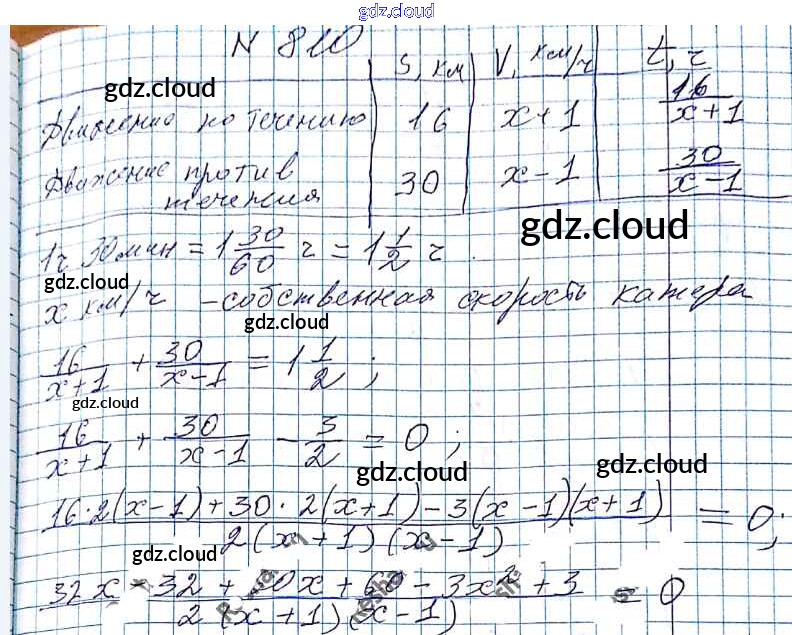 gdz.cloud
N 810
S, км V, км/ч t, ч
gdz.cloud
Движение по течению 16 x+1 16/(x+1)
Движение против течения 30 x-1 30/(x-1)
gdz.cloud
1ч 30мин = 1 30/60 ч = 1 1/2 ч.
gdz.cloud
x км/ч - собственная скорость катера
gdz.cloud
16/(x+1) + 30/(x-1) = 1 1/2;
gdz.cloud
16/(x+1) + 30/(x-1) - 3/2 = 0;
gdz.cloud
gdz.cloud
gdz.cloud
(16·2(x-1)+30·2(x+1)-3(x-1)(x+1))/(2(x+1)(x-1)) = 0;
gdz.cloud
(32x-32+30x+60-3x²+3)/(2(x+1)(x-1)) = 0